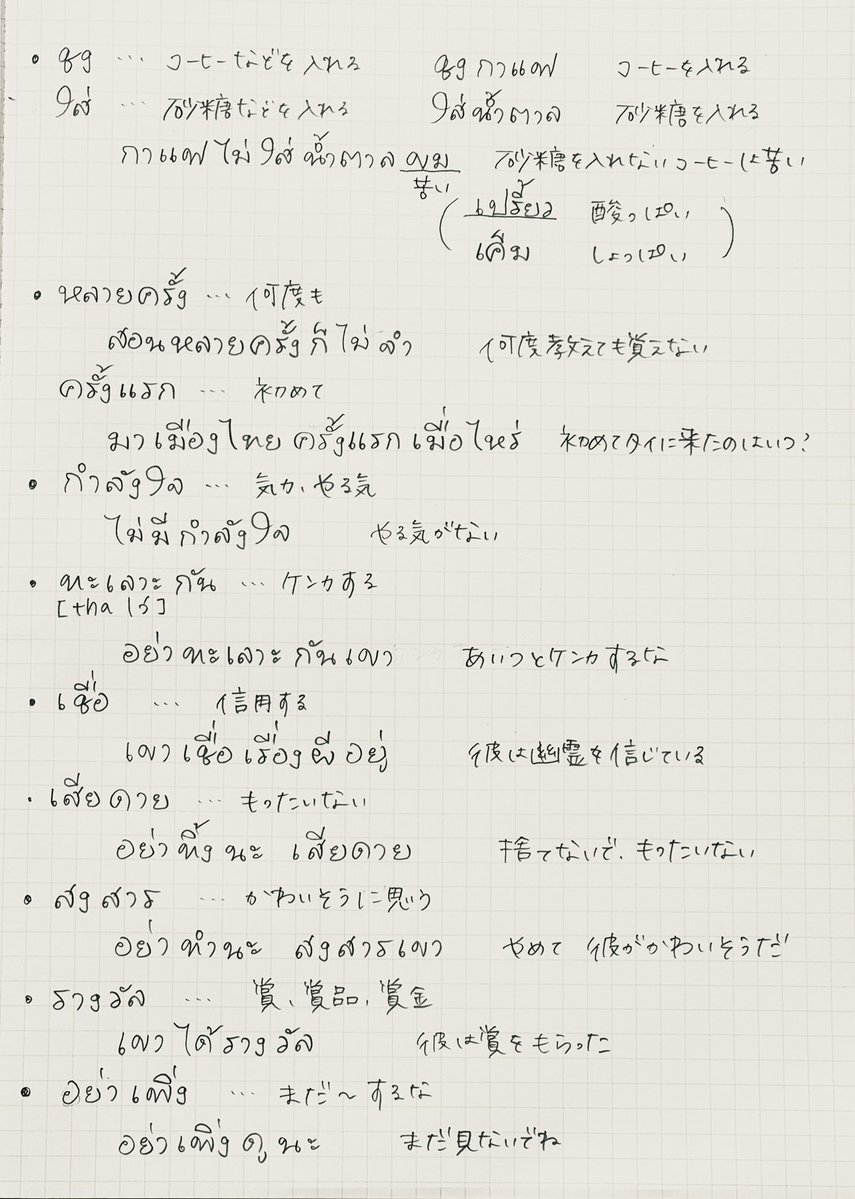 ・ชง … コーヒーなどを入れる ชงกาแฟ コーヒーを入れる
ใส่ … 砂糖などを入れる ใส่น้ำตาล 砂糖を入れる
กาแฟไม่ใส่น้ำตาลขม 砂糖を入れないコーヒーは苦い
苦い
(เปรี้ยว 酸っぱい
เค็ม しょっぱい)
・หลายครั้ง … 何度も
สอนหลายครั้งก็ไม่จำ 何度教えても覚えない
ครั้งแรก … 初めて
มาเมืองไทยครั้งแรกเมื่อไหร่ 初めてタイに来たのはいつ?
・กำลังใจ … 気力、やる気
ไม่มีกำลังใจ やる気がない
・ทะเลาะกัน … ケンカする
อย่าทะเลาะกันเขา あいつとケンカするな
・เชื่อ … 信用する
เขาเชื่อเรื่องผีอยู่ 彼は幽霊を信じている
・เสียดาย … もったいない
อย่าทิ้งนะ เสียดาย 捨てないで、もったいない
・สงสาร … かわいそうに思う
อย่าทำนะ สงสารเขา やめて 彼がかわいそうだ
・รางวัล … 賞、賞品、賞金
เขาได้รางวัล 彼は賞をもらった
・อย่าเพิ่ง … まだ〜するな
อย่าเพิ่งดูนะ まだ見ないでね